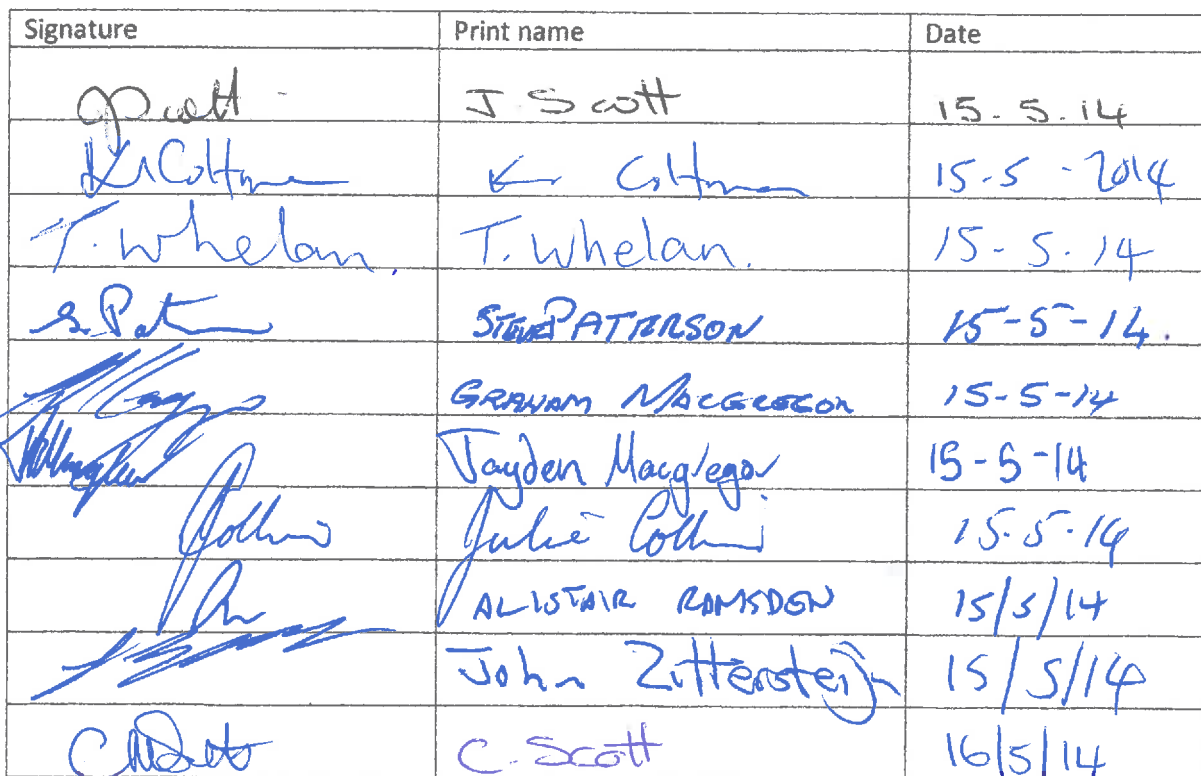 Signature Print name Date
J Scott 15.5.14
K Coltman K Coltman 15-5-2014
T. Whelan. T. Whelan. 15-5.14
S. Pat STEVE PATERSON 15-5-14.
GRAHAM MACGREGOR 15-5-14
Jayden Macgregor 15-5-14
Collins Julie Collins 15.5.14
ALISTAIR RAMSDEN 15/5/14
John Zittersteijn 15/5/14
C. Scott 16/5/14